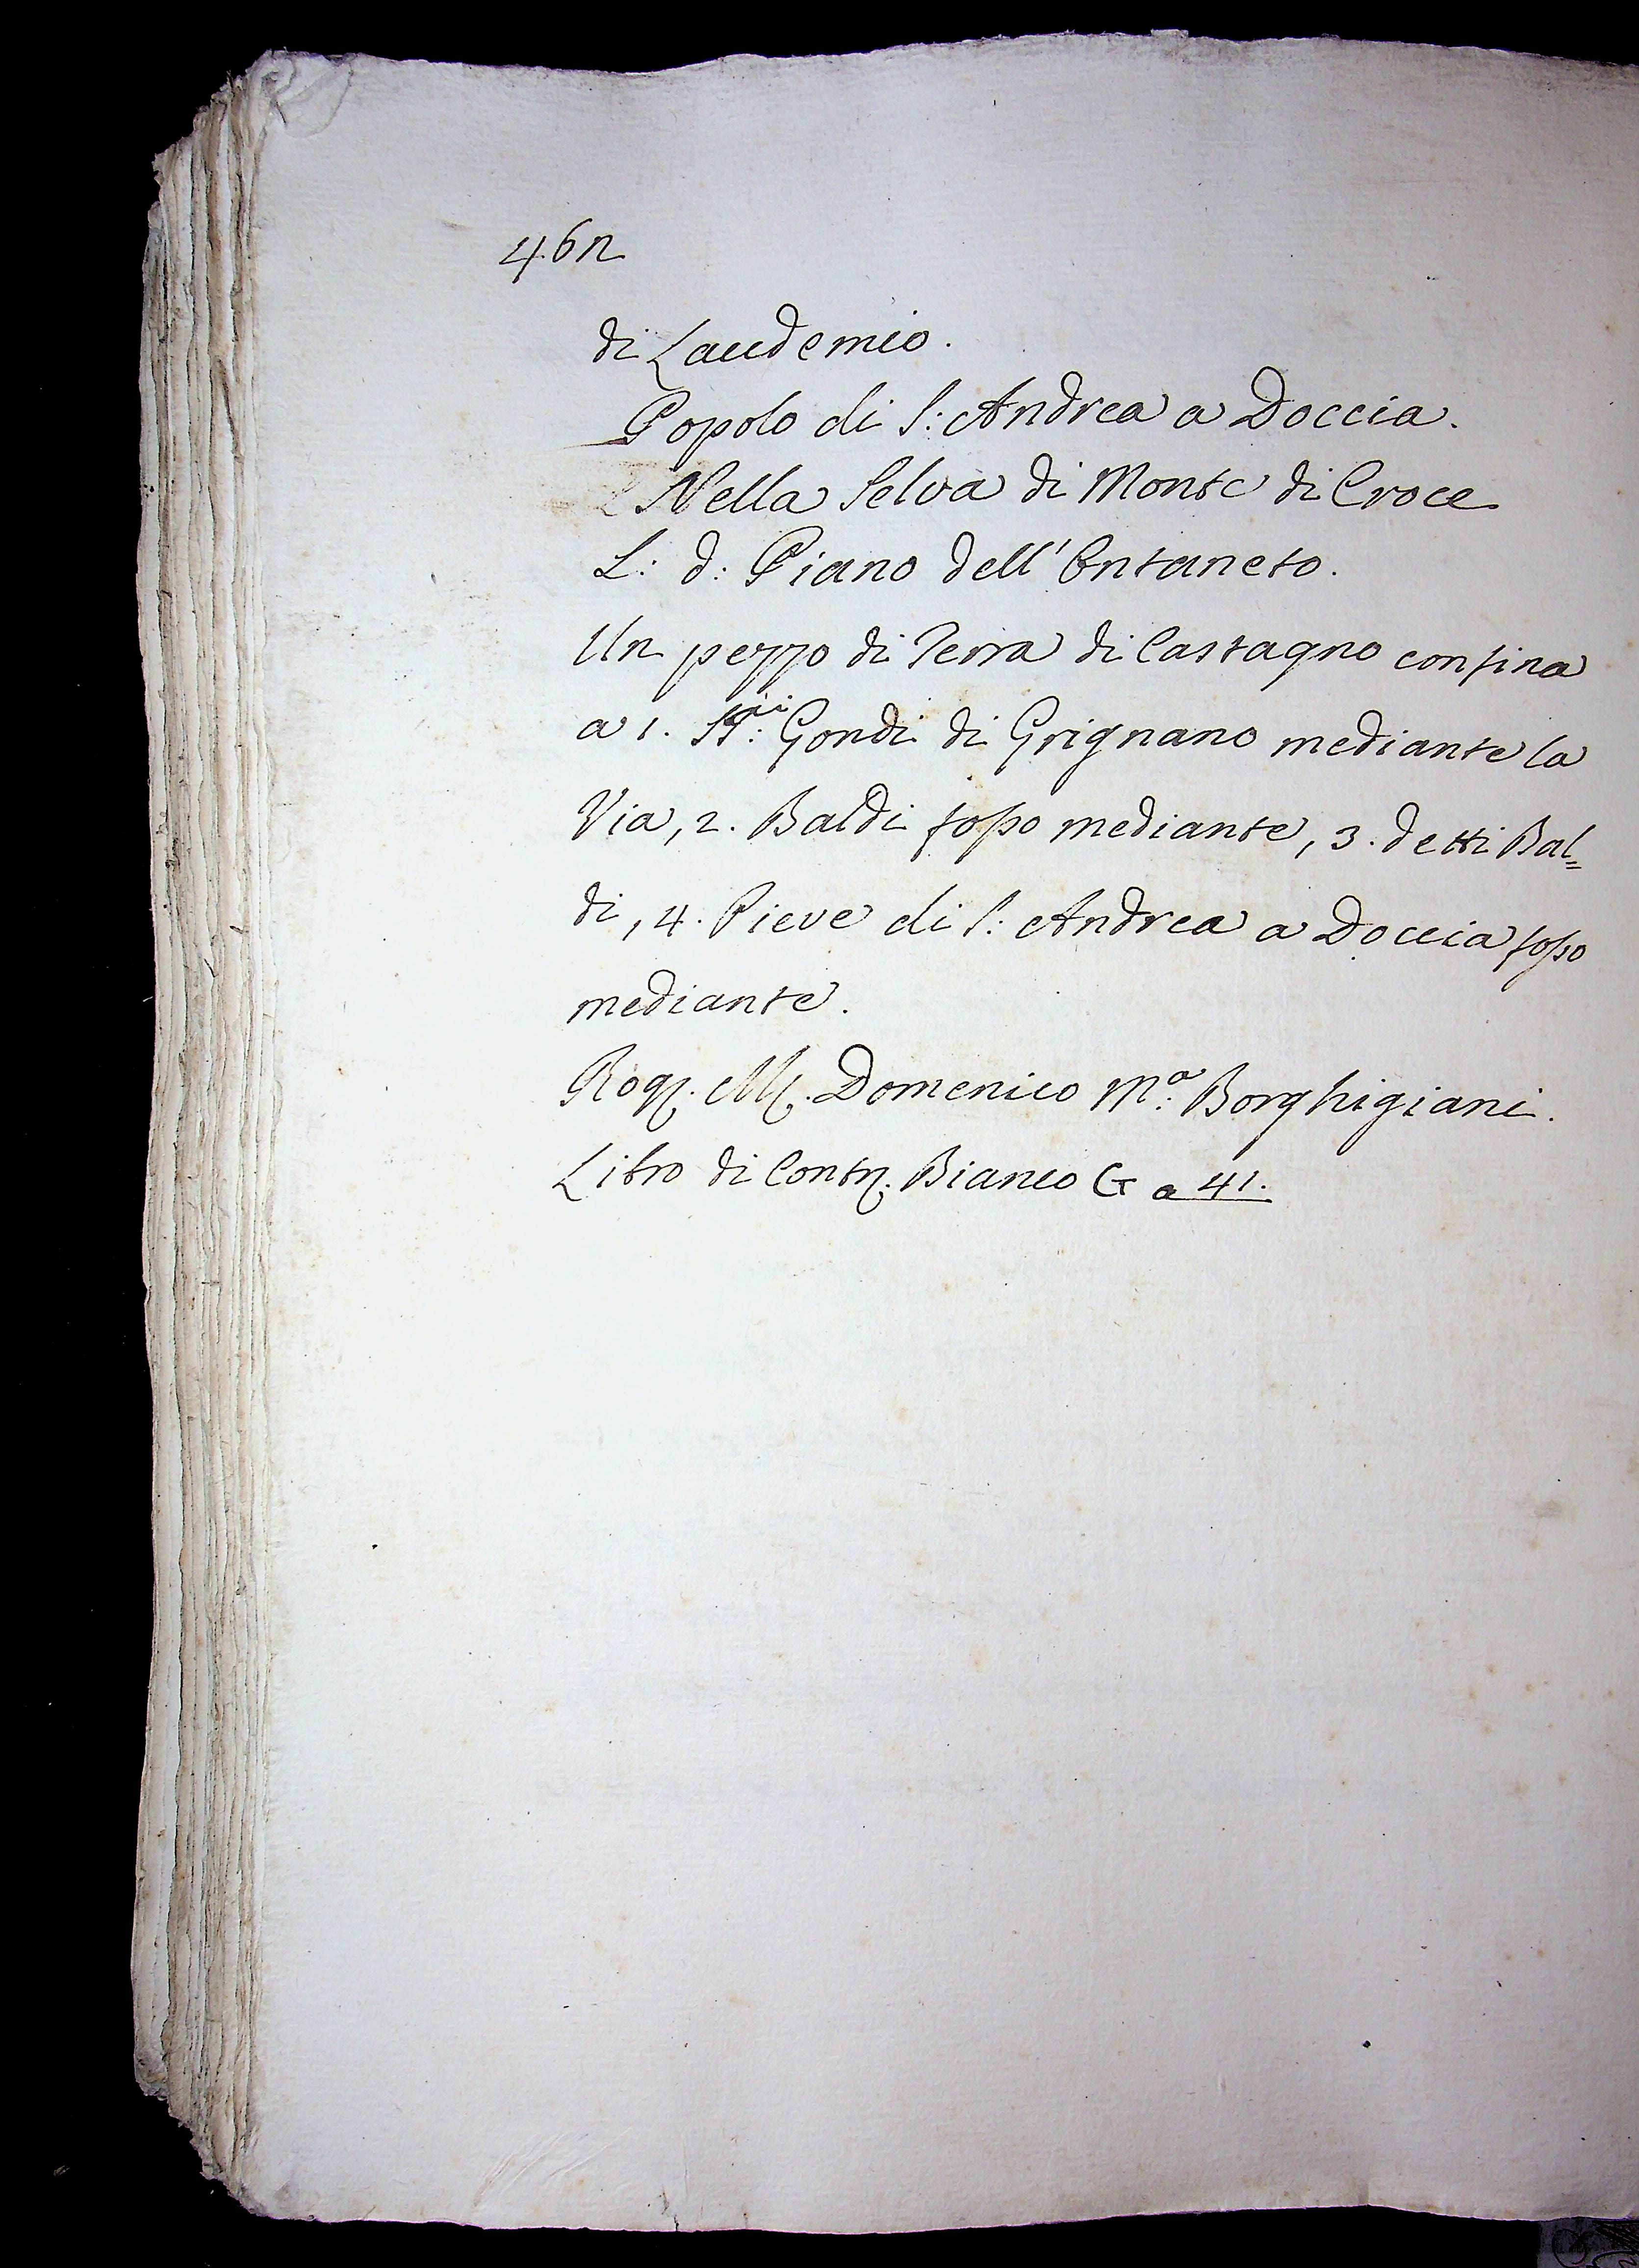 46n
di Laudemio.
Popolo di S: Andrea a Doccia.
Nella Selva di Monte di Croce
L: d: Piano dell'Ontaneto.
Un pezzo di Terra di Castagno confina
a 1. SS:ri Gondi di Grignano mediante la
Via, 2. Baldi fosso mediante, 3. detti Bal=
di, 4. Pieve di S: Andrea a Doccia fosso
mediante.
Rog. M. Domenico M:a Borghigiani.
Libro di Contr. Bianco G a 41.